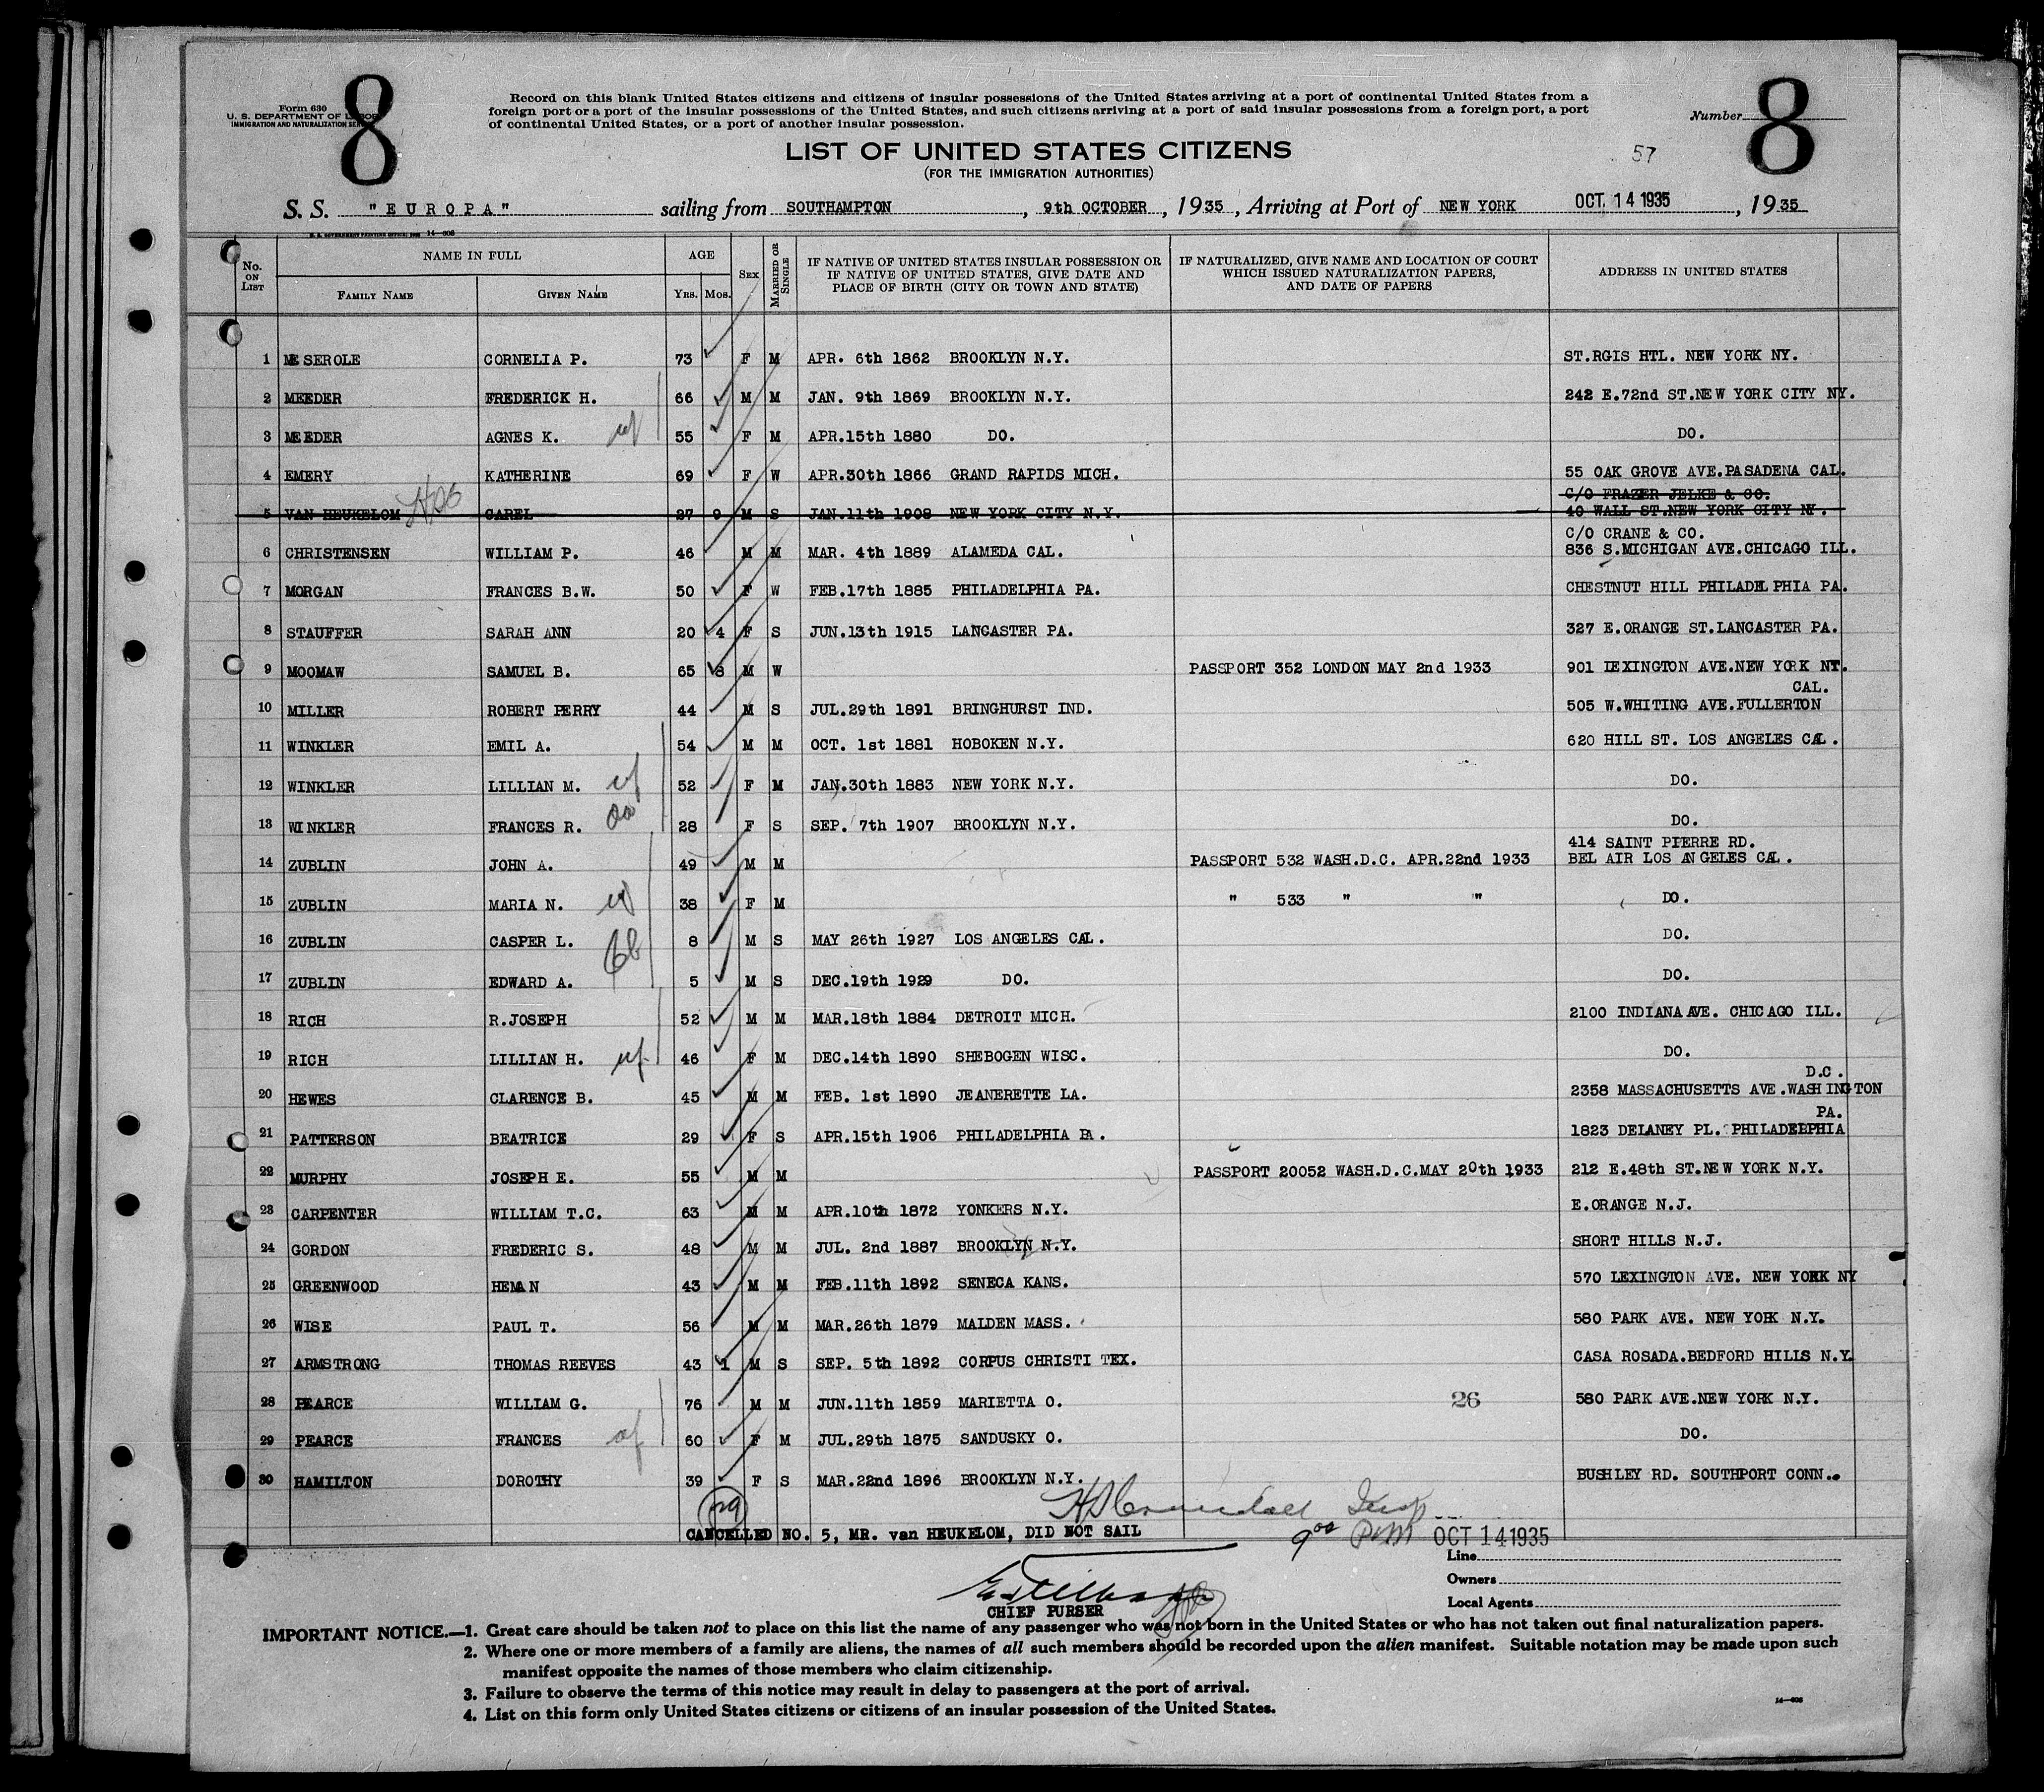 8
Form 630
U. S. DEPARTMENT OF LABOR
IMMIGRATION AND NATURALIZATION SERVICE
Record on this blank United States citizens and citizens of insular possessions of the United States arriving at a port of continental United States from a
foreign port or a port of the insular possessions of the United States, and such citizens arriving at a port of said insular possessions from a foreign port, a port
of continental United States, or a port of another insular possession.
Number 8
LIST OF UNITED STATES CITIZENS
(FOR THE IMMIGRATION AUTHORITIES)
57
S. S. "EUROPA" sailing from SOUTHAMPTON, 9th OCTOBER, 1935, Arriving at Port of NEW YORK OCT. 14 1935, 1935
No. ON LIST NAME IN FULL FAMILY NAME GIVEN NAME AGE YRS. MOS. SEX MARRIED OR SINGLE IF NATIVE OF UNITED STATES INSULAR POSSESSION OR IF NATIVE OF UNITED STATES, GIVE DATE AND PLACE OF BIRTH (CITY OR TOWN AND STATE) IF NATURALIZED, GIVE NAME AND LOCATION OF COURT WHICH ISSUED NATURALIZATION PAPERS, AND DATE OF PAPERS ADDRESS IN UNITED STATES
1 MESEROLE CORNELIA P. 73 F M APR. 6th 1862 BROOKLYN N.Y. ST.RGIS HTL. NEW YORK NY.
2 MEEDER FREDERICK H. 66 M M JAN. 9th 1869 BROOKLYN N.Y. 242 E.72nd ST.NEW YORK CITY NY.
3 MEEDER AGNES K. wf 55 F M APR.15th 1880 DO. DO.
4 EMERY KATHERINE 69 F W APR.30th 1866 GRAND RAPIDS MICH. 55 OAK GROVE AVE.PASADENA CAL.
5 VAN HEUKELOM CAREL 27 9 M S JAN.11th 1908 NEW YORK CITY N.Y. C/O FRAZER JELKE & CO. 40 WALL ST.NEW YORK CITY NY.
6 CHRISTENSEN WILLIAM P. 46 M M MAR. 4th 1889 ALAMEDA CAL. C/O CRANE & CO. 836 S.MICHIGAN AVE.CHICAGO ILL.
7 MORGAN FRANCES B.W. 50 F W FEB.17th 1885 PHILADELPHIA PA. CHESTNUT HILL PHILADELPHIA PA.
8 STAUFFER SARAH ANN 20 4 F S JUN.13th 1915 LANCASTER PA. 327 E.ORANGE ST.LANCASTER PA.
9 MOOMAW SAMUEL B. 65 8 M W PASSPORT 352 LONDON MAY 2nd 1933 901 LEXINGTON AVE.NEW YORK NY.
10 MILLER ROBERT PERRY 44 M S JUL.29th 1891 BRINGHURST IND. 505 W.WHITING AVE.FULLERTON CAL.
11 WINKLER EMIL A. 54 M M OCT. 1st 1881 HOBOKEN N.Y. 620 HILL ST. LOS ANGELES CAL.
12 WINKLER LILLIAN M. wf 52 F M JAN.30th 1883 NEW YORK N.Y. DO.
13 WINKLER FRANCES R. da 28 F S SEP. 7th 1907 BROOKLYN N.Y. DO.
14 ZUBLIN JOHN A. 49 M M PASSPORT 532 WASH.D.C. APR.22nd 1933 414 SAINT PIERRE RD. BEL AIR LOS ANGELES CAL.
15 ZUBLIN MARIA N. wf 38 F M " 533 " " DO.
16 ZUBLIN CASPER L. 8 M S MAY 26th 1927 LOS ANGELES CAL. DO.
17 ZUBLIN EDWARD A. 5 M S DEC.19th 1929 DO. DO.
18 RICH R.JOSEPH 52 M M MAR.18th 1884 DETROIT MICH. 2100 INDIANA AVE. CHICAGO ILL.
19 RICH LILLIAN H. wf 46 F M DEC.14th 1890 SHEBOGEN WISC. DO.
20 HEWES CLARENCE B. 45 M M FEB. 1st 1890 JEANERETTE LA. 2358 MASSACHUSETTS AVE.WASHINGTON D.C.
21 PATTERSON BEATRICE 29 F S APR.15th 1906 PHILADELPHIA PA. 1823 DELANEY PL. PHILADELPHIA PA.
22 MURPHY JOSEPH E. 55 M M PASSPORT 20052 WASH.D.C.MAY 20th 1933 212 E.48th ST.NEW YORK N.Y.
23 CARPENTER WILLIAM T.C. 63 M M APR.10th 1872 YONKERS N.Y. E.ORANGE N.J.
24 GORDON FREDERIC S. 48 M M JUL. 2nd 1887 BROOKLYN N.Y. SHORT HILLS N.J.
25 GREENWOOD HEMAN 43 M M FEB.11th 1892 SENECA KANS. 570 LEXINGTON AVE. NEW YORK NY
26 WISE PAUL T. 56 M M MAR.26th 1879 MALDEN MASS. 580 PARK AVE. NEW YORK N.Y.
27 ARMSTRONG THOMAS REEVES 43 1 M S SEP. 5th 1892 CORPUS CHRISTI TEX. CASA ROSADA.BEDFORD HILLS N.Y.
28 PEARCE WILLIAM G. 76 M M JUN.11th 1859 MARIETTA O. 26 580 PARK AVE.NEW YORK N.Y.
29 PEARCE FRANCES wf 60 F M JUL.29th 1875 SANDUSKY O. DO.
30 HAMILTON DOROTHY 39 F S MAR.22nd 1896 BROOKLYN N.Y. BUSHLEY RD. SOUTHPORT CONN.
29
CANCELLED NO. 5, MR. van HEUKELOM, DID NOT SAIL
9 00 PM OCT 14 1935
Line
Owners
Local Agents
CHIEF PURSER
IMPORTANT NOTICE.—1. Great care should be taken not to place on this list the name of any passenger who was not born in the United States or who has not taken out final naturalization papers.
2. Where one or more members of a family are aliens, the names of all such members should be recorded upon the alien manifest. Suitable notation may be made upon such
manifest opposite the names of those members who claim citizenship.
3. Failure to observe the terms of this notice may result in delay to passengers at the port of arrival.
4. List on this form only United States citizens or citizens of an insular possession of the United States.